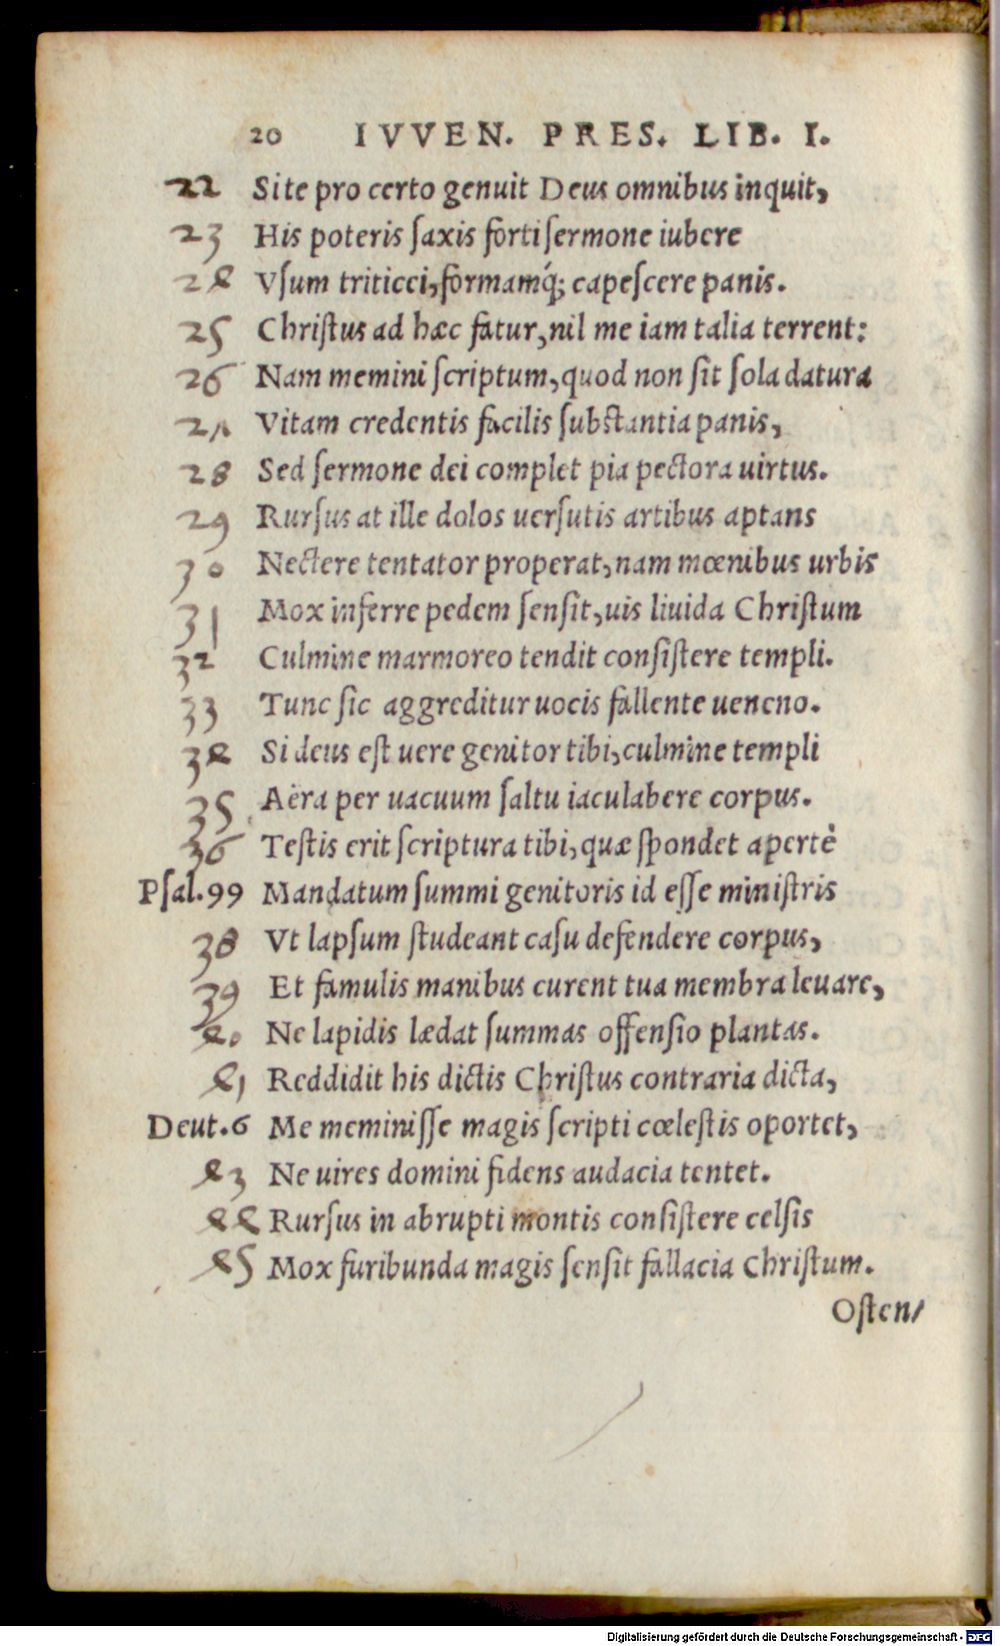 20 IVVEN. PRES. LIB. I.
22 Si te pro certo genuit Deus omnibus inquit,
23 His poteris ſaxis forti ſermone iubere
24 Vſum triticei, formamq́; capeſcere panis.
25 Chriſtus ad hæc fatur, nil me iam talia terrent:
26 Nam memini ſcriptum, quod non ſit ſola datura
27 Vitam credentis facilis ſubstantia panis,
28 Sed ſermone dei complet pia pectora uirtus.
29 Rurſus at ille dolos uerſutis artibus aptans
30 Nectere tentator properat, nam mœnibus urbis
31 Mox inferre pedem ſenſit, uis liuida Chriſtum
32 Culmine marmoreo tendit conſiſtere templi.
33 Tunc ſic aggreditur uocis fallente ueneno.
34 Si deus eſt uere genitor tibi, culmine templi
35 Aëra per uacuum ſaltu iaculabere corpus.
36 Teſtis erit ſcriptura tibi, quæ ſpondet apertè
Pſal.99 Mandatum ſummi genitoris id eſſe miniſtris
38 Vt lapſum ſtudeant caſu defendere corpus,
39 Et famulis manibus curent tua membra leuare,
40 Ne lapidis lædat ſummas offenſio plantas.
41 Reddidit his dictis Chriſtus contraria dicta,
Deut.6 Me meminiſſe magis ſcripti cœleſtis oportet,
43 Ne uires domini fidens audacia tentet.
44 Rurſus in abrupti montis conſiſtere celſis
45 Mox furibunda magis ſenſit fallacia Chriſtum.
Oſten/
Digitalisierung gefördert durch die Deutsche Forschungsgemeinschaft - DFG